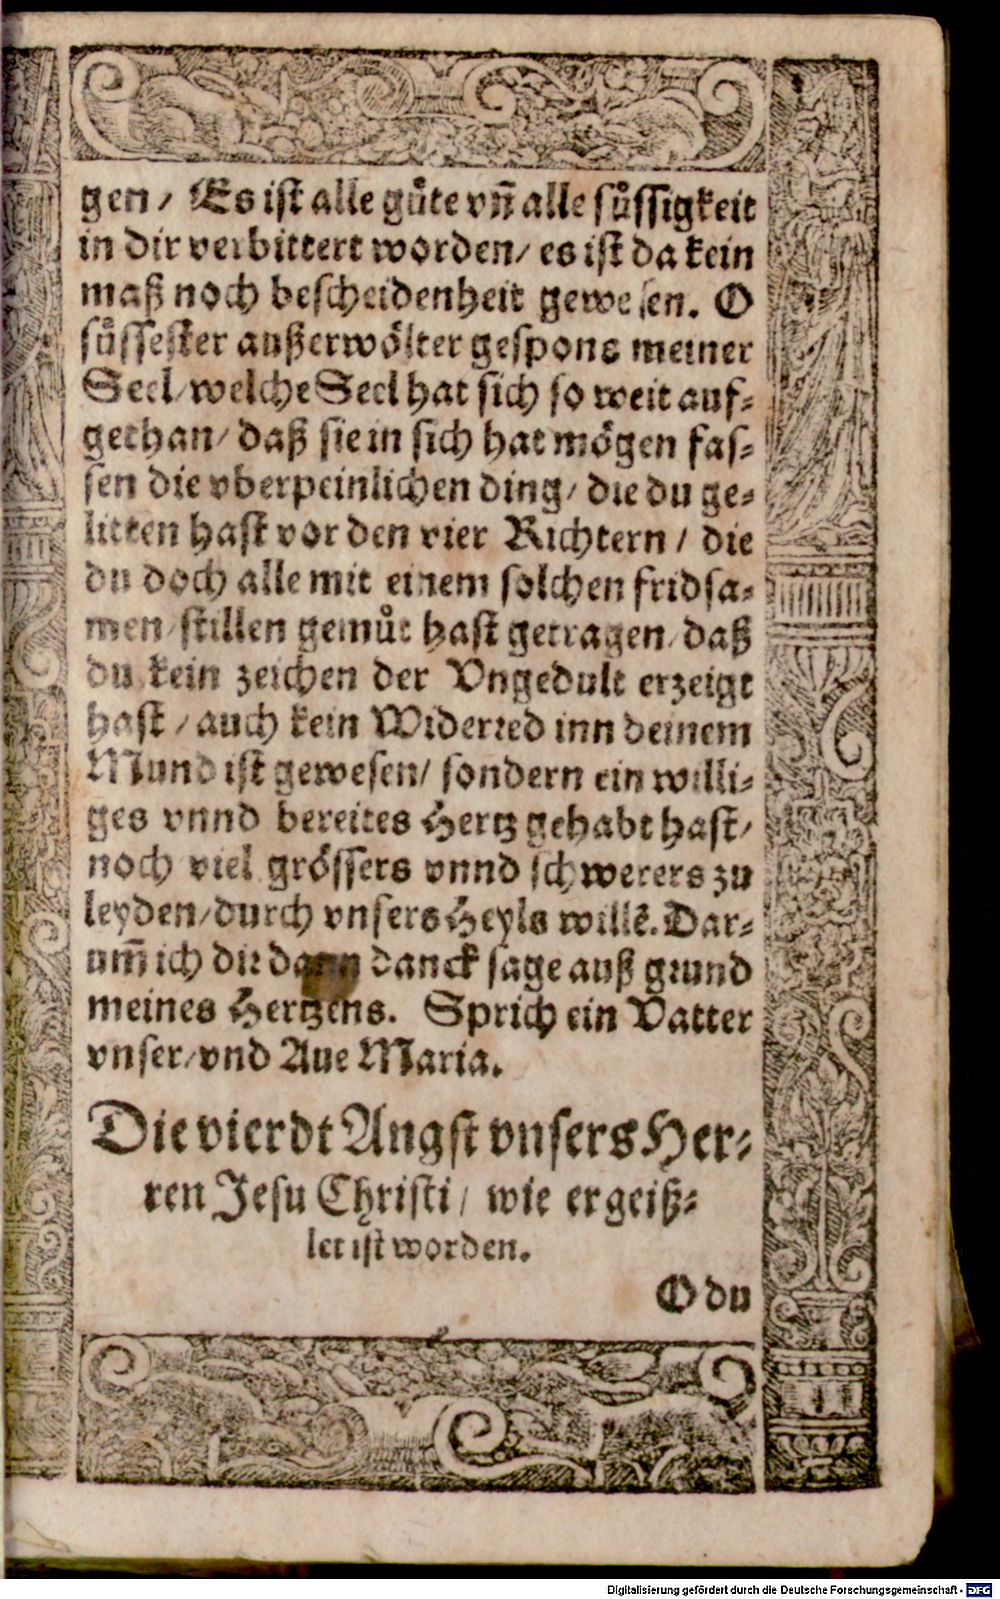 gen / Es ist alle guͤte vn̄ alle suͤssigkeit
in dir verbittert worden / es ist da kein
maß noch bescheidenheit gewesen. O
suͤssester außerwoͤlter gespons meiner
Seel / welche Seel hat sich so weit auf⸗
gethan / daß sie in sich hat moͤgen fas⸗
sen die vberpeinlichen ding / die du ge⸗
litten hast vor den vier Richtern / die
du doch alle mit einem solchen fridsa⸗
men / stillen gemuͤt hast getragen / daß
du kein zeichen der Vngedult erzeigt
hast / auch kein Widerred inn deinem
Mund ist gewesen / sondern ein willi⸗
ges vnnd bereites Hertz gehabt hast /
noch viel groͤssers vnnd schwerers zu
leyden / durch vnsers Heyls willē. Dar⸗
um̄ ich dir dann danck sage auß grund
meines Hertzens. Sprich ein Vatter
vnser / vnd Aue Maria.
Die vierdt Angst vnsers Her⸗
ren Jesu Christi / wie er geiß⸗
let ist worden.
O du
Digitalisierung gefördert durch die Deutsche Forschungsgemeinschaft - DFG